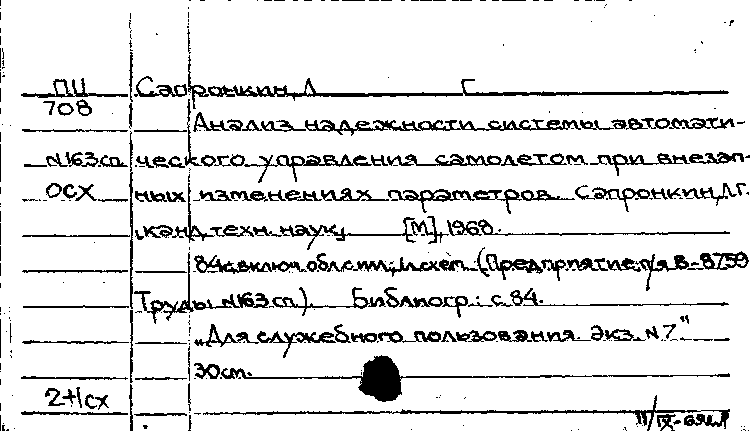 ПЦ Сапронкин, Л Г
708
Анализ надежности системы автомати-
N163сп ческого управления самолетом при внезап-
ОСХ ных изменениях параметров. Сапронкин, Л.Г.
, канд. техн. наук, [М], 1968.
84с.включ.обл. ил.; 1л.схем. (Предприятие п/я В-8759
Труды N163сп). Библиогр.: с.84.
„Для служебного пользования. Экз. N7"
30см.
2+1сх
11/IX-69г.